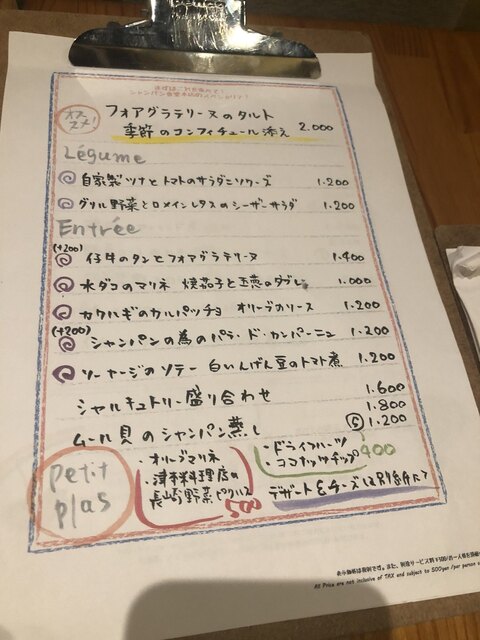 まずはこれを食べて!
オススメ! フォアグラテリーヌのタルト
季節のコンフィチュール添え 2.000
Légume
自家製ツナとトマトのサラダニソワーズ 1.200
グリル野菜とロメインレタスのシーザーサラダ 1.200
Entrée
(+200) 仔牛のタンとフォアグラテリーヌ 1.400
水ダコのマリネ 焼茄子と玉葱のタブレ 1.000
カワハギのカルパッチョ オリーブのソース 1.200
(+200) シャンパンの為のパテ・ド・カンパーニュ 1.200
ソーセージのソテー 白いんげん豆のトマト煮 1.200
シャルキュトリー盛り合わせ 1.600
ムール貝のシャンパン蒸し 1.800
Ⓢ 1.200
petit plas
・オリーブマリネ
・津本料理店の
長崎野菜ピクルス 500
・ドライフルーツ
・ココナッツチップ 400
デザート&チーズは別紙にて
All Price are not inclusive of TAX and subject to 500yen /per person